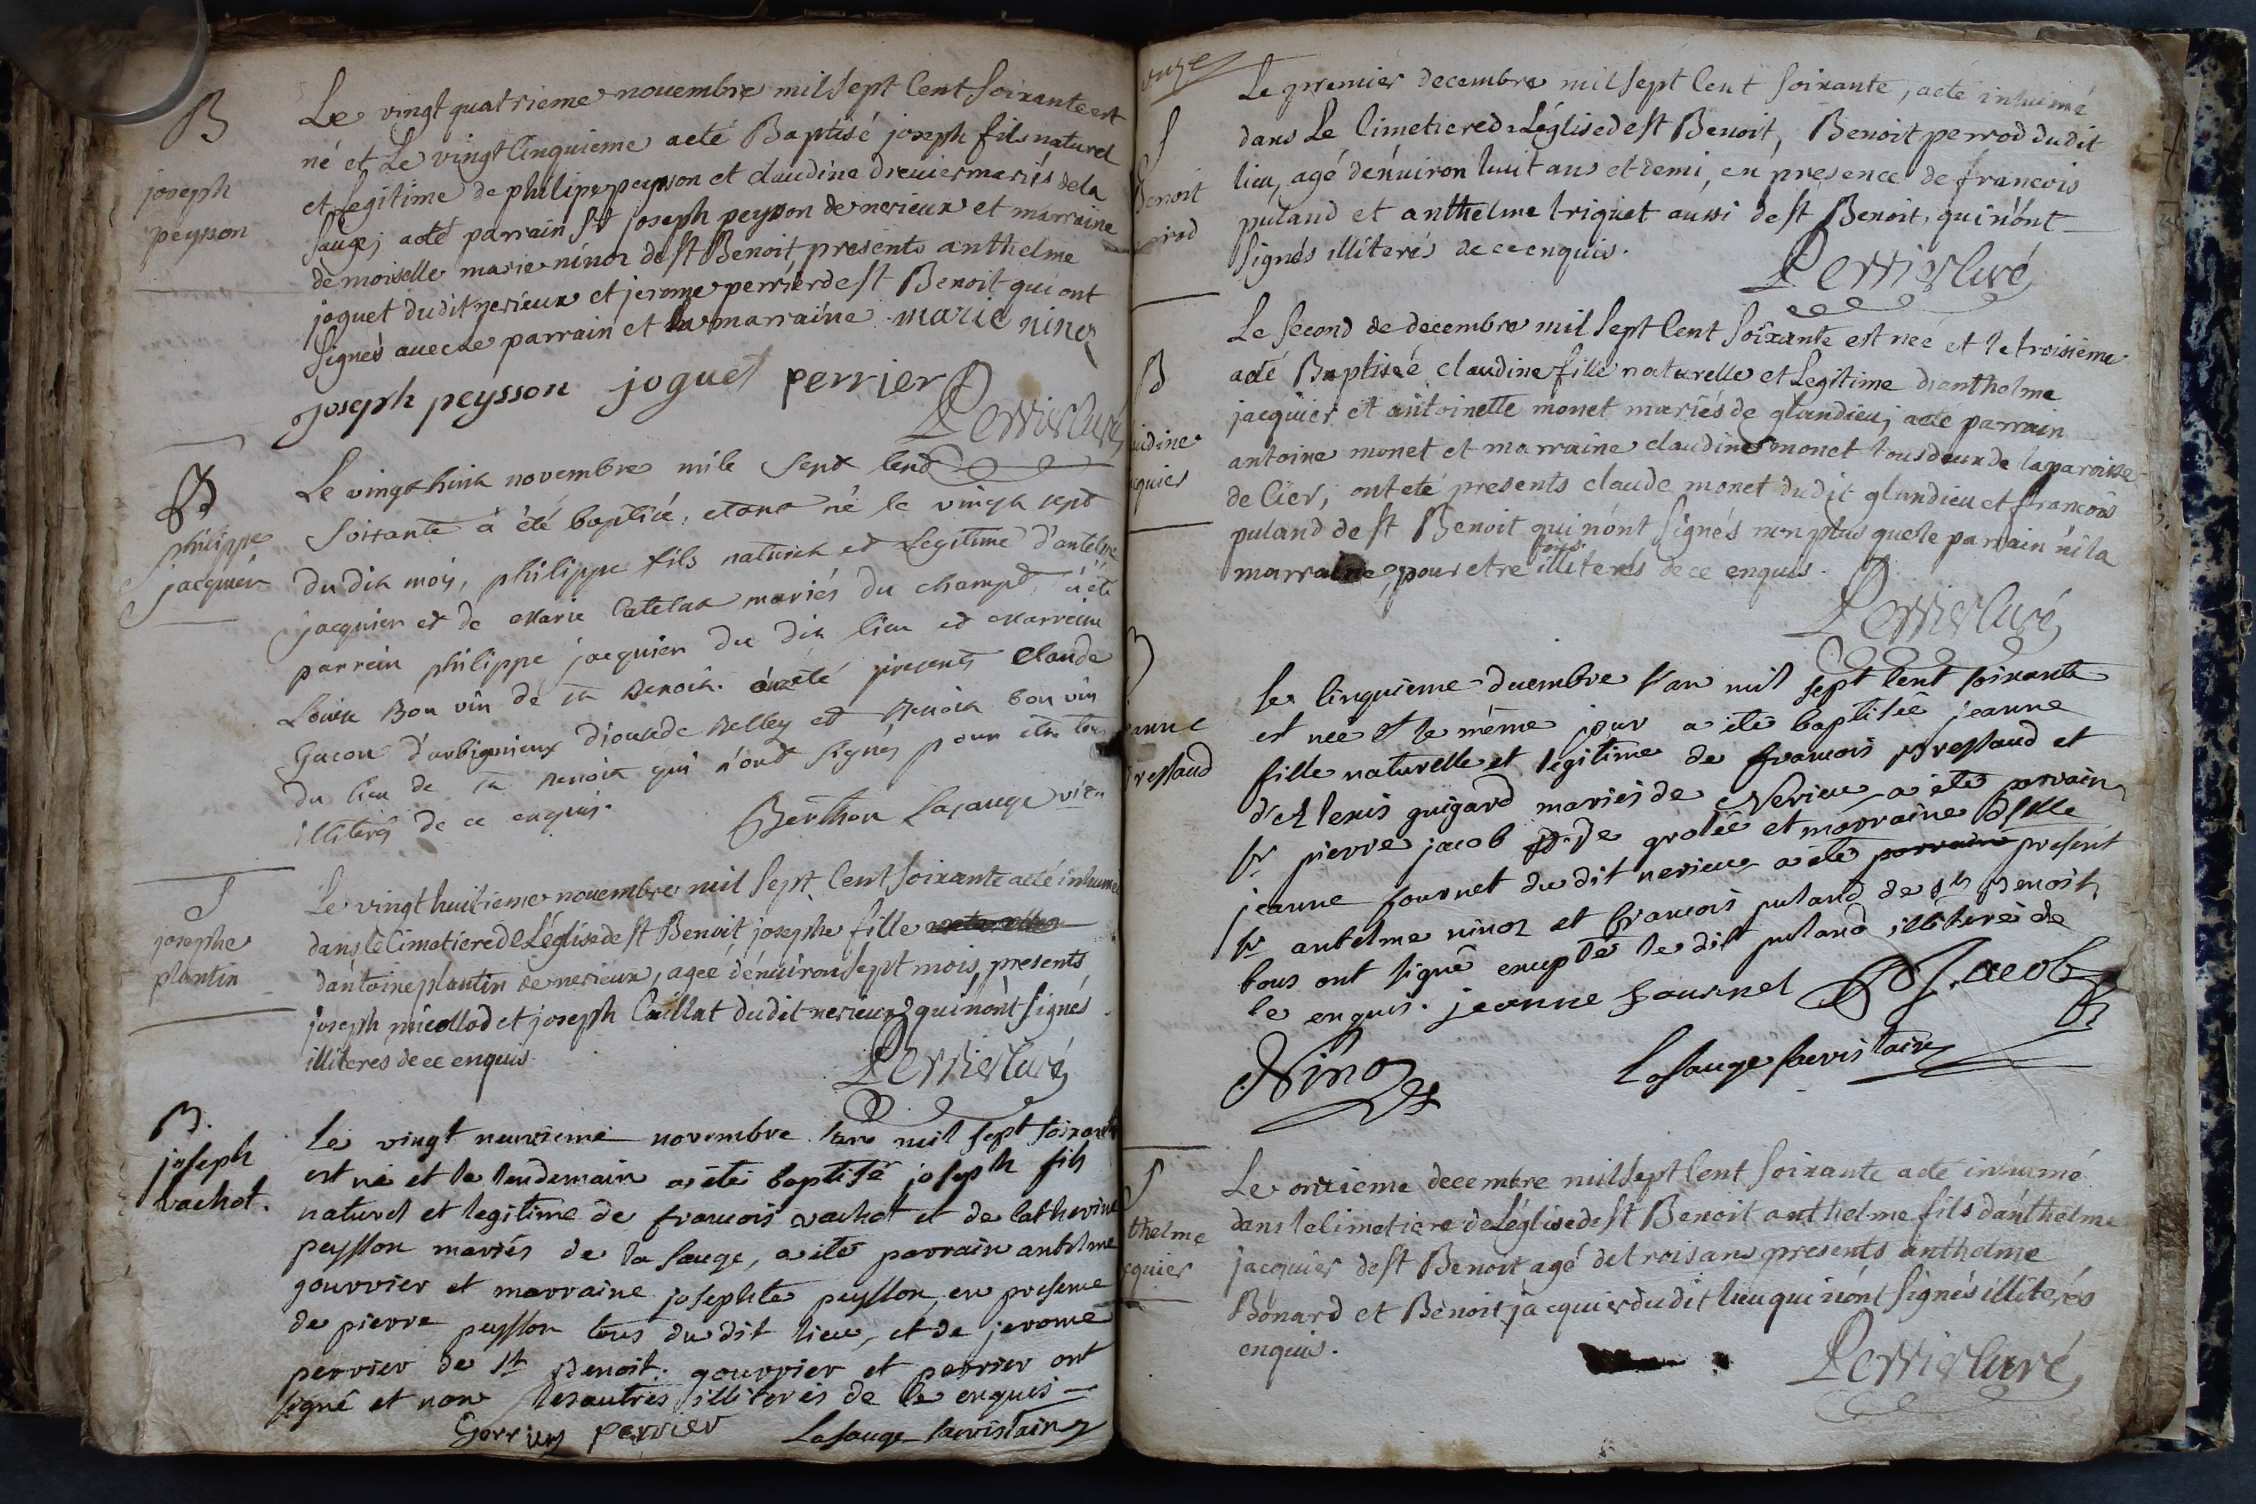 B
joseph
peysson
Le vingt quatrieme novembre mil sept Cent soixante est
né et Le vingt Cinquieme aeté Baptisé joseph fils naturel
et Legitime de philipe peysson et claudine drevier mariés de la
sauge; aeté parrain sr joseph peysson de nerieux et marraine
demoiselle marie ninoz de st Benoit, presents anthelme
joguet dudit nerieux et jerome perrier de st Benoit qui ont
signés avec le parrain et la marraine. marie ninoz
joseph peysson joguet perrier
Perrier Curé
B
philippe
jacquier
Le vingt huit novembre mile sept Cent
soixante à été baptisé, etant né le vingt sept
du dit mois, philippe fils naturel et Legitime d'antelme
jacquier et de Marie Catelat mariés du champt, à été
parrein philippe jacquier du dit lieu et Marreine
Louise Bon vin de st Benoit. ont été presents Claude
Gacon d'arbignieux diocese de Belley et Benoit bon vin
du lieu de st Benoit qui n'ont signés pour etre tous
illiterés de ce enquis.
Berthon Lasauge vic.
S
josephe
plantin
Le vingt huitieme novembre mil sept Cent soixante aeté inhumée
dans le Cimetiere de L'églisede st Benoit josephe fille
d'antoine plantin de nerieux, agée d'énuiron sept mois, presents
joseph micollod et joseph Caillat dudit nerieux qui n'ont signés
illiteres de ce enquis.
Perrier Curé
B.
joseph
vachot.
Le vingt neuvieme novembre l'an mil sept soixante
est né et le lendemain a été baptisé joseph fils
naturel et legitime de francois vachot et de Catherine
peysson mariés de la sauge, a été parrain antelme
gourrier et marraine josephte peysson, en presence
de pierre peysson tous du dit lieu, et de jerome
perrier de st Benoit. gourrier et perrier ont
signé et non les autres illiterés de ce enquis
Gorrier perrier Lasauge sacristain
onze
S
Benoit
perrod
Le premier decembre mil sept Cent soixante, aeté inhumé
dans Le Cimetiere de L'églisede st Benoit, Benoit perrod dudit
lieu, agé d'énuiron huit ans et demi, en presence de francois
puland et anthelme triquet aussi de st Benoit, qui n'ont
signés illiterés de ce enquis.
Perrier Curé
B
claudine
jacquier
Le second de decembre mil sept Cent soixante est née et le troisieme
aeté Baptisée claudine fille naturelle et Legitime d'anthelme
jacquier et antoinette monet mariés de glandieu; aeté parrain
antoine monet et marraine claudine monet tous deux de la paroisse
de Cier; ont eté presents claude monet dudit glandieu et francois
puland de st Benoit qui n'ont signés non plus que le parrain ni la
marraine, pour etre tous illiterés de ce enquis.
Perrier Curé
B
jeanne
Bressaud
Le Cinquieme decembre l'an mil sept Cent soixante
est née et le même jour a été baptisée jeanne
fille naturelle et légitime de francois Bressaud et
d'Alexis guigard mariés de Nerieu, a été parrain
sr pierre jacob de grolée et marraine dslle
jeanne fournet du dit nerieu, a été parrain present
sr antelme ninoz et francois puland de st Benoit,
tous ont signé excepté le dit puland illiteré de
ce enquis. jeanne fournel P Jacob
Ninoz Lasauge sacristain
S
anthelme
jacquier
Le onzieme decembre mil sept Cent soixante aeté inhumé
dans le Cimetiere de L'églisede st Benoit anthelme fils d'anthelme
jacquier de st Benoit agé de trois ans presents anthelme
Bonard et Benoit jacquier dudit lieu qui n'ont signés illiterés
enquis.
Perrier Curé